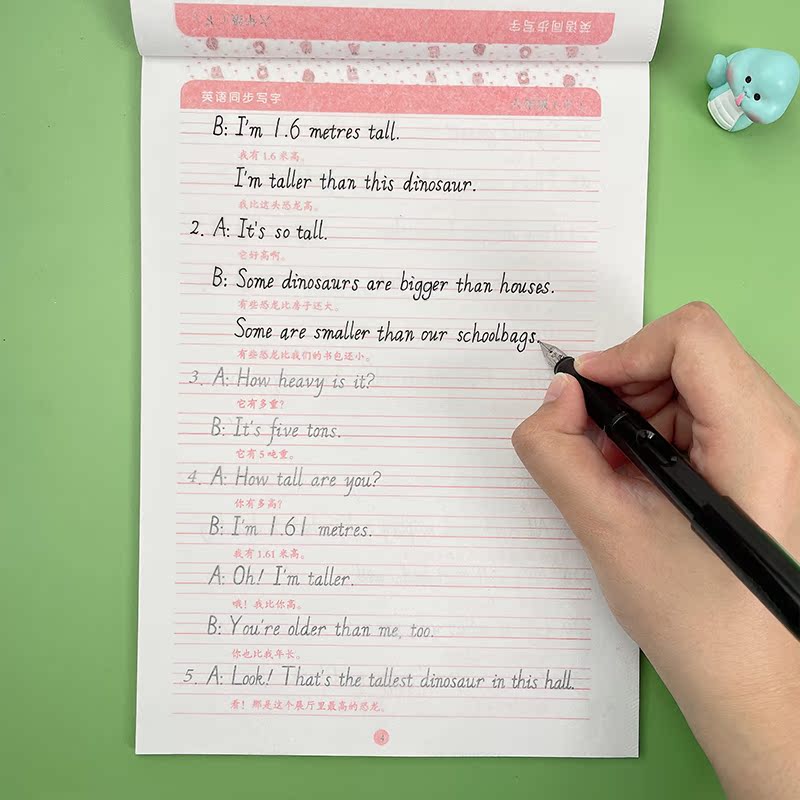 英语同步写字
英语同步写字
B: I'm 1.6 metres tall.
我有1.6米高。
I'm taller than this dinosaur.
我比这头恐龙高。
2. A: It's so tall.
它好高啊。
B: Some dinosaurs are bigger than houses.
有些恐龙比房子还大。
Some are smaller than our schoolbags.
有些恐龙比我们的书包还小。
3. A: How heavy is it?
它有多重?
B: It's five tons.
它有5吨重。
4. A: How tall are you?
你有多高?
B: I'm 1.61 metres.
我有1.61米高。
A: Oh! I'm taller.
哦!我比你高。
B: You're older than me, too.
你也比我年长。
5. A: Look! That's the tallest dinosaur in this hall.
看!那是这个展厅里最高的恐龙。
4